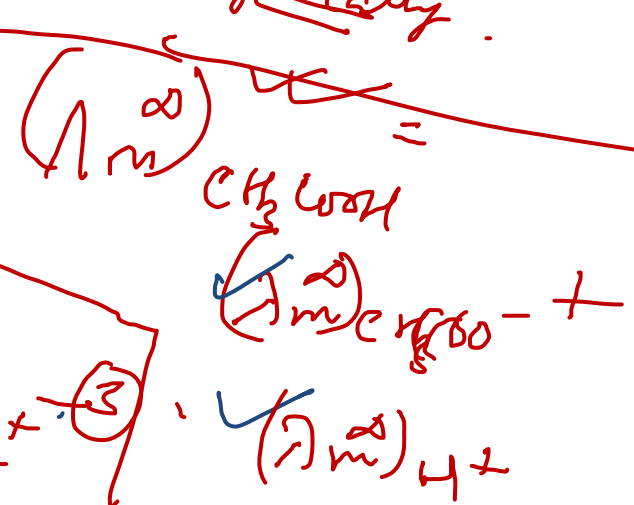 (Λm∞) CH3COOH =
(λm∞)CH3COO- +
(λm∞)H+
3